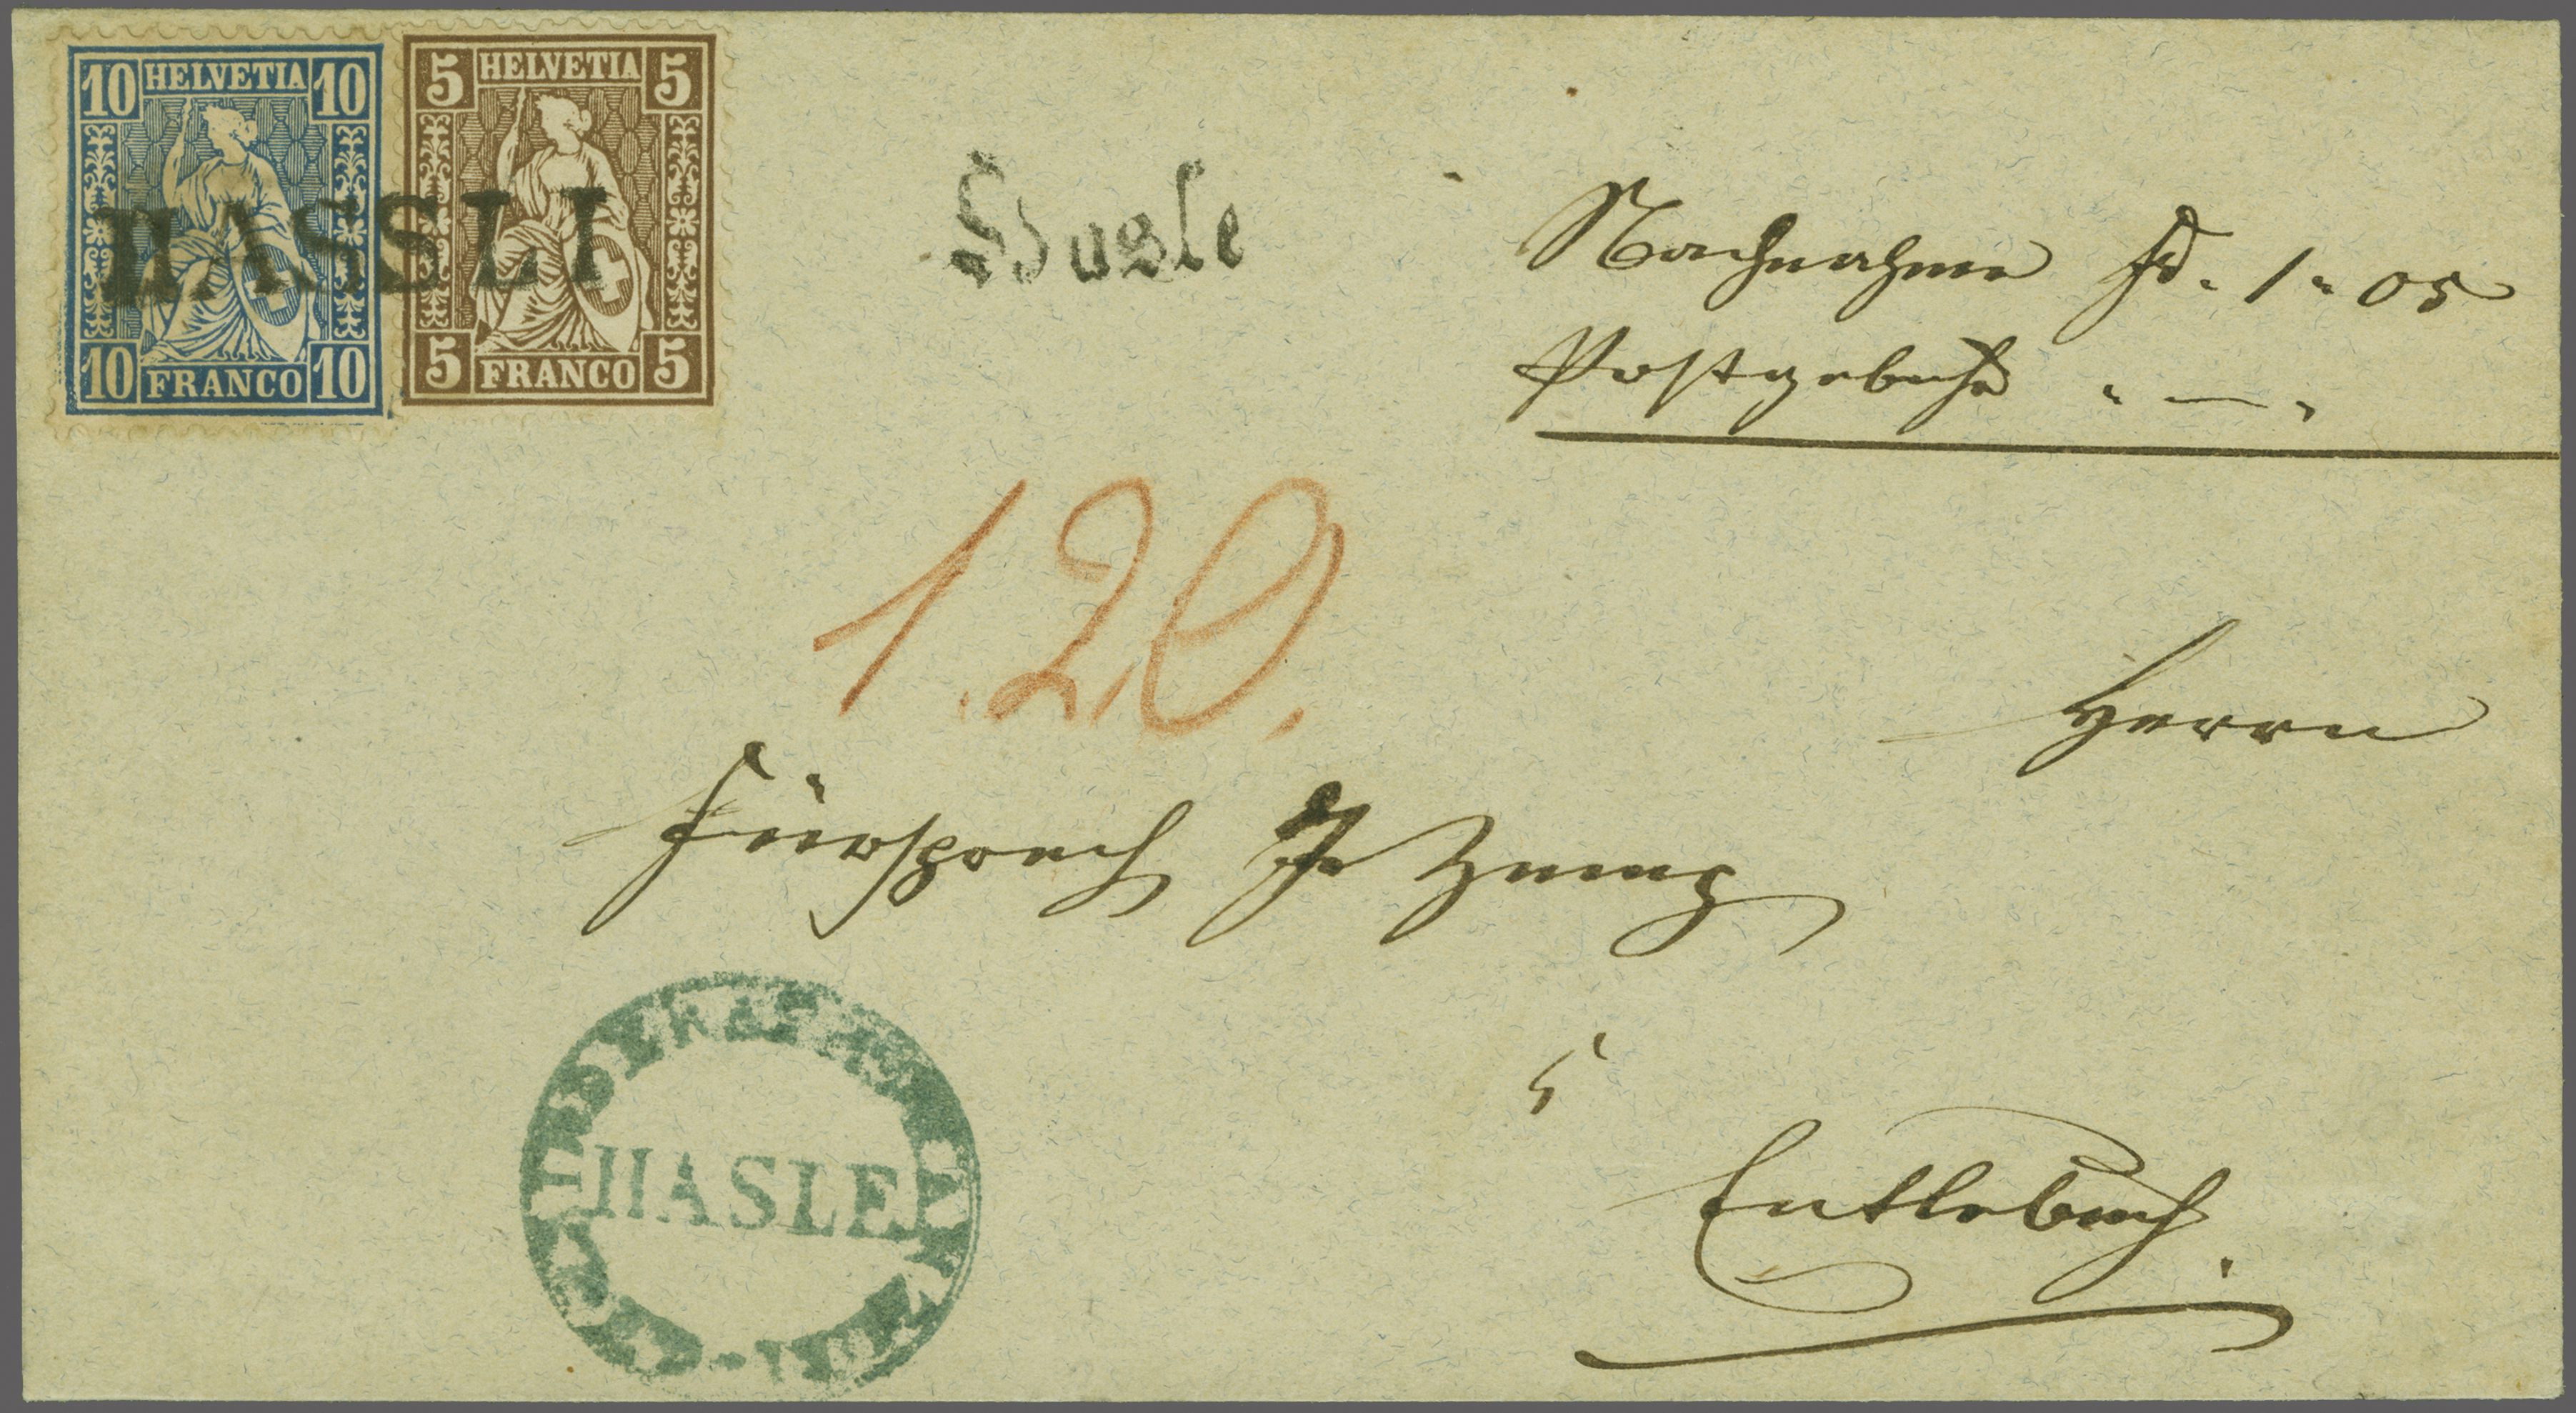 10 HELVETIA 10
10 FRANCO 10
5 HELVETIA 5
5 FRANCO 5
HASSLI
Hasle
Nachnahme Fr. 1" 05
Postgebühr " — "
1.20.
Herrn
Fürsprech Zemp
Entlebuch.
HASLE